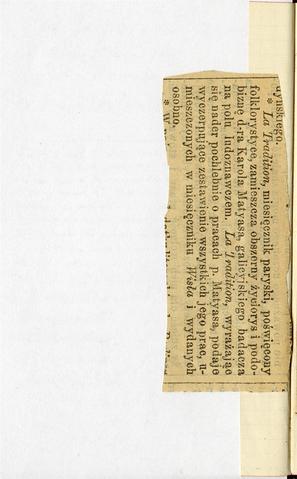 dyńskiego.
* La Tradition, miesięcznik paryski, poświęcony
folklorystyce, zamieszcza obszerny życiorys i podo-
biznę d-ra Karola Matyasa, galicyjskiego badacza
na polu ludoznawczem. La Tradition, wyrażając
się nader pochlebnie o pracach p. Matyasa, podaje
wyczerpujące zestawienie wszystkich jego prac, u-
mieszczonych w miesięczniku Wisła i wydanych
osobno.
* W